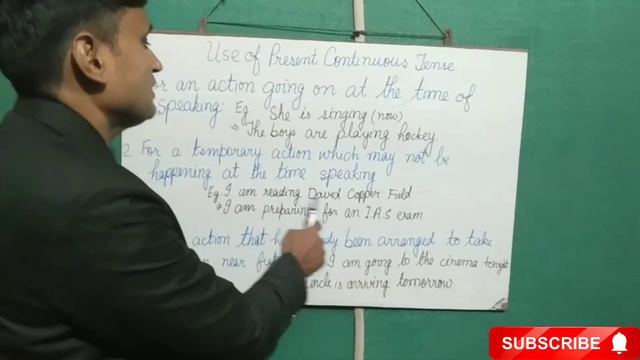 Use of Present Continuous Tense.
an action going on at the time of
Speaking: Eg. She is singing (now)
→ The boys are playing hockey.
2. For a temporary action which may not be
happening at the time speaking
Eg. I am reading David Copper Field
→ I am preparing for an I.A.S exam
action that been arranged to take
near I am going to the cinema tonight
uncle is arriving tomorrow
SUBSCRIBE